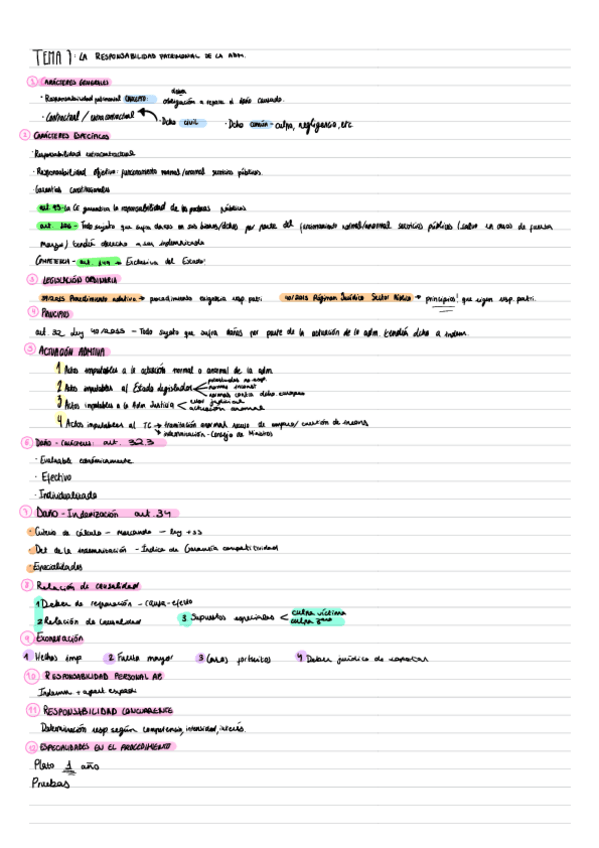 TEMA 7: LA RESPONSABILIDAD PATRIMONIAL DE LA ADM.
1 CARÁCTERES GENERALES
· Responsabilidad patrimonial CONCEPTO: obligación a reparar el daño causado.
· Contractual / extracontractual · Dcho civil · Dcho común - culpa, negligencia, etc.
2 CARÁCTERES ESPECÍFICOS
· Responsabilidad extracontractual
· Responsabilidad objetiva: funcionamiento normal/anormal servicios públicos.
· Garantías constitucionales
art. 93 - La CE garantiza la responsabilidad de los poderes públicos
art. 106 - Todo sujeto que sufra daños en sus bienes/dchos por parte del funcionamiento normal/anormal servicios públicos (salvo en casos de fuerza
mayor) tendrá derecho a ser indemnizado
COMPETENCIA - art. 149 → Exclusiva del Estado
3 LEGISLACIÓN ORDINARIA
39/2015 Procedimiento adtivo → procedimiento exigencia resp. patri. 40/2015 Régimen Jurídico Sector Público → principios! que rigen resp. patri.
4 PRINCIPIOS
art. 32 Ley 40/2015 - Todo sujeto que sufra daños por parte de la actuación de la adm. tendrá dcho a indem.
5 ACTUACIÓN ADMTIVA
1 Actos imputables a la actuación normal o anormal de la adm
2 Actos imputables al Estado legislador
normas contra dcho. europeo
3 Actos imputables a la Adm Justicia
error judicial
actuación anormal
4 Actos imputables al TC → tramitación anormal recurso de amparo/ cuestión de incons.
→ indemnización - Consejo de Ministros
6 DAÑO - Carácteres: art. 32.3
· Evaluable económicamente
· Efectivo
· Individualizado
7 DAÑO - Indemnización art. 34
· Criterio de cálculo - mercado - ley + ss
· Det de la indemnización - Índice de Garantía competitividad
· Especialidades
8 Relación de causalidad
1 Deber de reparación - causa-efecto
2 Relación de causalidad 3 Supuestos especiales
culpa víctima
culpa 3º
9 EXONERACIÓN
1 Hechos imp 2 Fuerza mayor 3 Casos fortuitos 4 Deber jurídico de soportar
10 RESPONSABILIDAD PERSONAL
11 RESPONSABILIDAD CONCURRENTE
Determinación resp según competencia, intensidad, interés.
12 ESPECIALIDADES EN EL PROCEDIMIENTO
Plazo 1 año
Pruebas